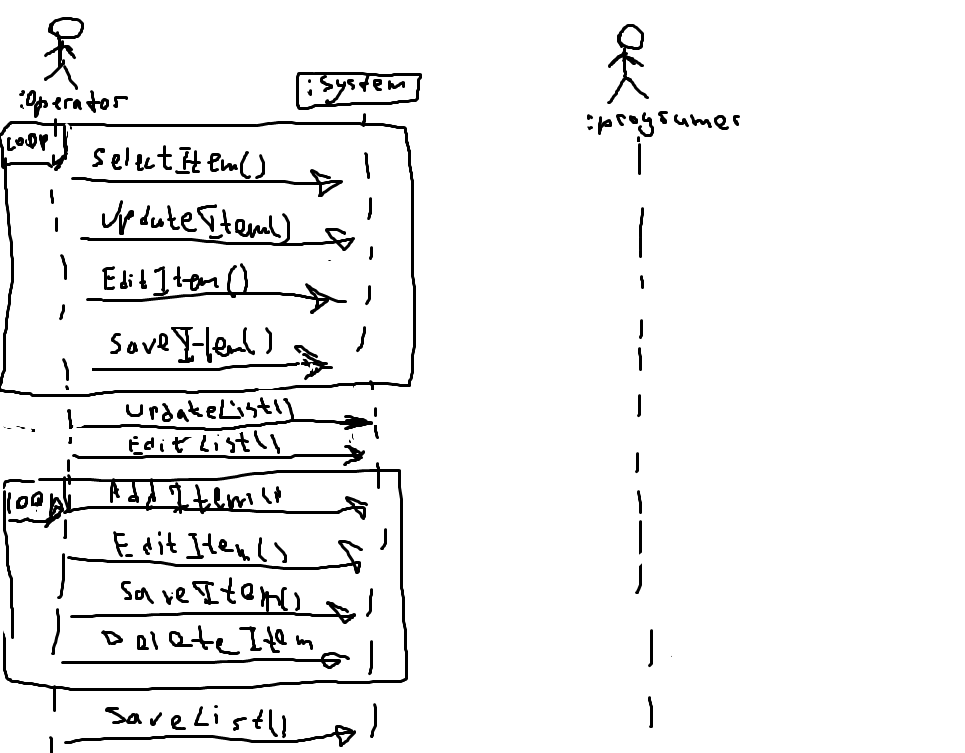 :System
:Operator
:progsumer
LOOP
SelectItem()
UpdateItem()
EditItem()
SaveItem()
UpdateList()
EditList()
LOOP
AddItem()
EditItem()
SaveItem()
DeleteItem
SaveList()